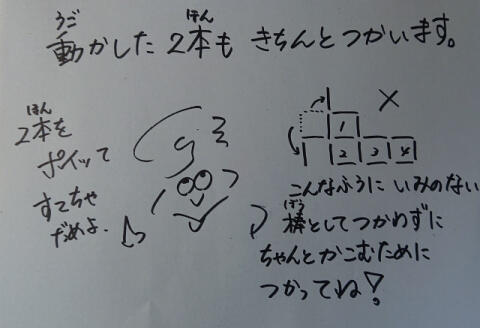 うご
ほん
動かした2本も きちんとつかいます。
ほん
2本を
ポイッて
すてちゃ
だめよ.
×
1
2 3 4
こんなふうに いみのない
ぼう
棒としてつかわずに
ちゃんとかこむために
つかってね!